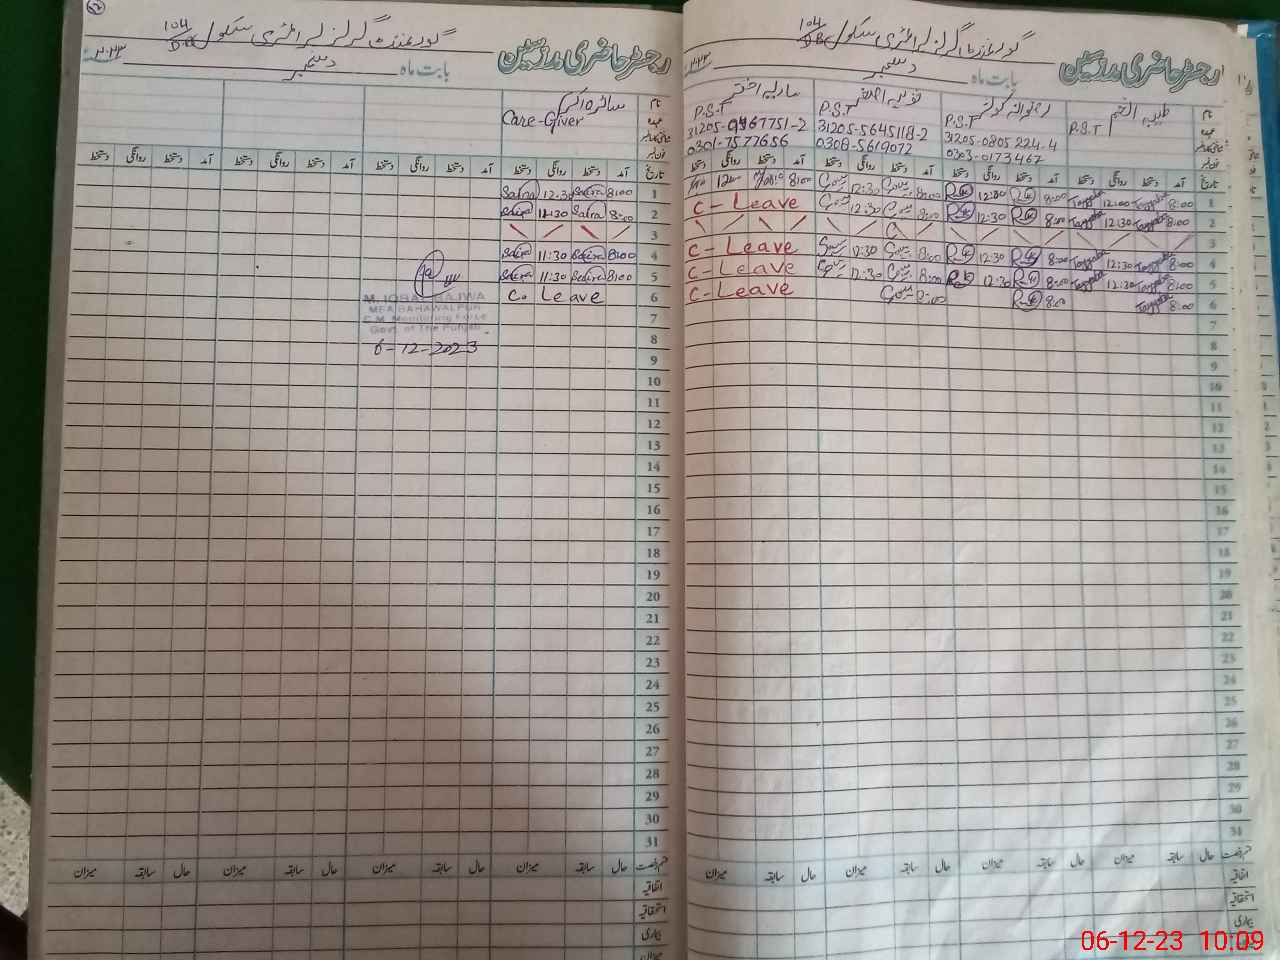 رجسٹر حاضری مدرسین
گورنمنٹ گرلز ایلیمنٹری سکول 104/DB
بابت ماہ دسمبر
نام
طیبہ
P.S.T
رضوانہ کوثر
P.S.T
31205-0805224-4
0303-0173467
P.S.T
31205-5645118-2
0308-5619072
ماریہ اختر
P.S.T
31205-9967751-2
0301-7577656
تاریخ آمد دستخط روانگی دستخط آمد دستخط روانگی دستخط آمد دستخط روانگی دستخط آمد دستخط روانگی دستخط
1 8:00 Tayyaba 12:00 Tayyaba 8:00 12:30 8:00 12:30 8:00
2 8:00 Tayyaba 12:30 Tayyaba 8:00 12:30 8:00 12:30 C - Leave
3
4 8:00 Tayyaba 12:30 Tayyaba 8:00 12:30 8:00 12:30 C - Leave
5 8:00 Tayyaba 12:30 Tayyaba 8:00 12:30 8:00 12:30 C - Leave
6 8:00 Tayyaba 8:00 8:00 C - Leave
7
8
9
10
11
12
13
14
15
16
17
18
19
20
21
22
23
24
25
26
27
28
29
30
31
حال سابقہ میزان حال سابقہ میزان حال سابقہ میزان حال سابقہ میزان
اتفاقیہ
استحقاقیہ
بیماری
رجسٹر حاضری مدرسین
گورنمنٹ گرلز ایلیمنٹری سکول 104/DB
بابت ماہ دسمبر ۲۰۲۳
نام
سائرہ اکرم
Care-Giver
تاریخ آمد دستخط روانگی دستخط آمد دستخط روانگی دستخط آمد دستخط روانگی دستخط آمد دستخط روانگی دستخط
1 8:00 Saira 12:30 Saira
2 8:00 Saira 11:30 Saira
3
4 8:00 Saira 11:30 Saira
5 8:00 Saira 11:30 Saira
6 C. Leave
7
8
9
10
11
12
13
14
15
16
17
18
19
20
21
22
23
24
25
26
27
28
29
30
31
M. IQBAL BAJWA
MEA BAHAWALPUR
C.M. Monitoring Force
Govt. of The Punjab
6-12-2023
حال سابقہ میزان حال سابقہ میزان حال سابقہ میزان حال سابقہ میزان
اتفاقیہ
استحقاقیہ
بیماری
میزان
06-12-23 10:09